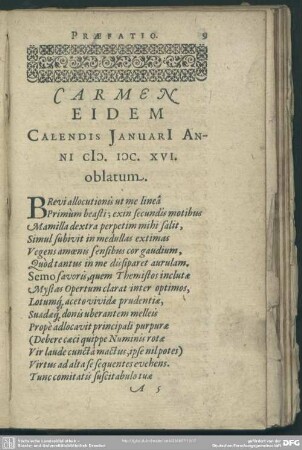 PRÆFATIO. 9
CARMEN
EIDEM
CALENDIS JANUARI AN-
NI CIƆ. IƆC. XVI.
oblatum.
BRevi allocutionis ut me lineâ
Primùm beasti; exin secundis motibus
Mamilla dextra perpetim mihi salit,
Simul subivit in medullas extimas
Vegens amœnis sensibus cor gaudium,
Quòd tantus in me dissiparet aurulam,
Semo favoris, quem Themistos inclutæ
Mystas Opertum clarat inter optimos,
Lotumq́, aceto vividæ prudentiæ,
Suadæq́, donis uberantem melleis
Propè adlocavit principali purpuræ
(Debere cæci quippe Numinis rotæ
Vir laude cunctâ mactus, ipse nil potes)
Virtus ad alta se sequentes evehens.
Tunc comitatis suscitabulo tuæ
A 5